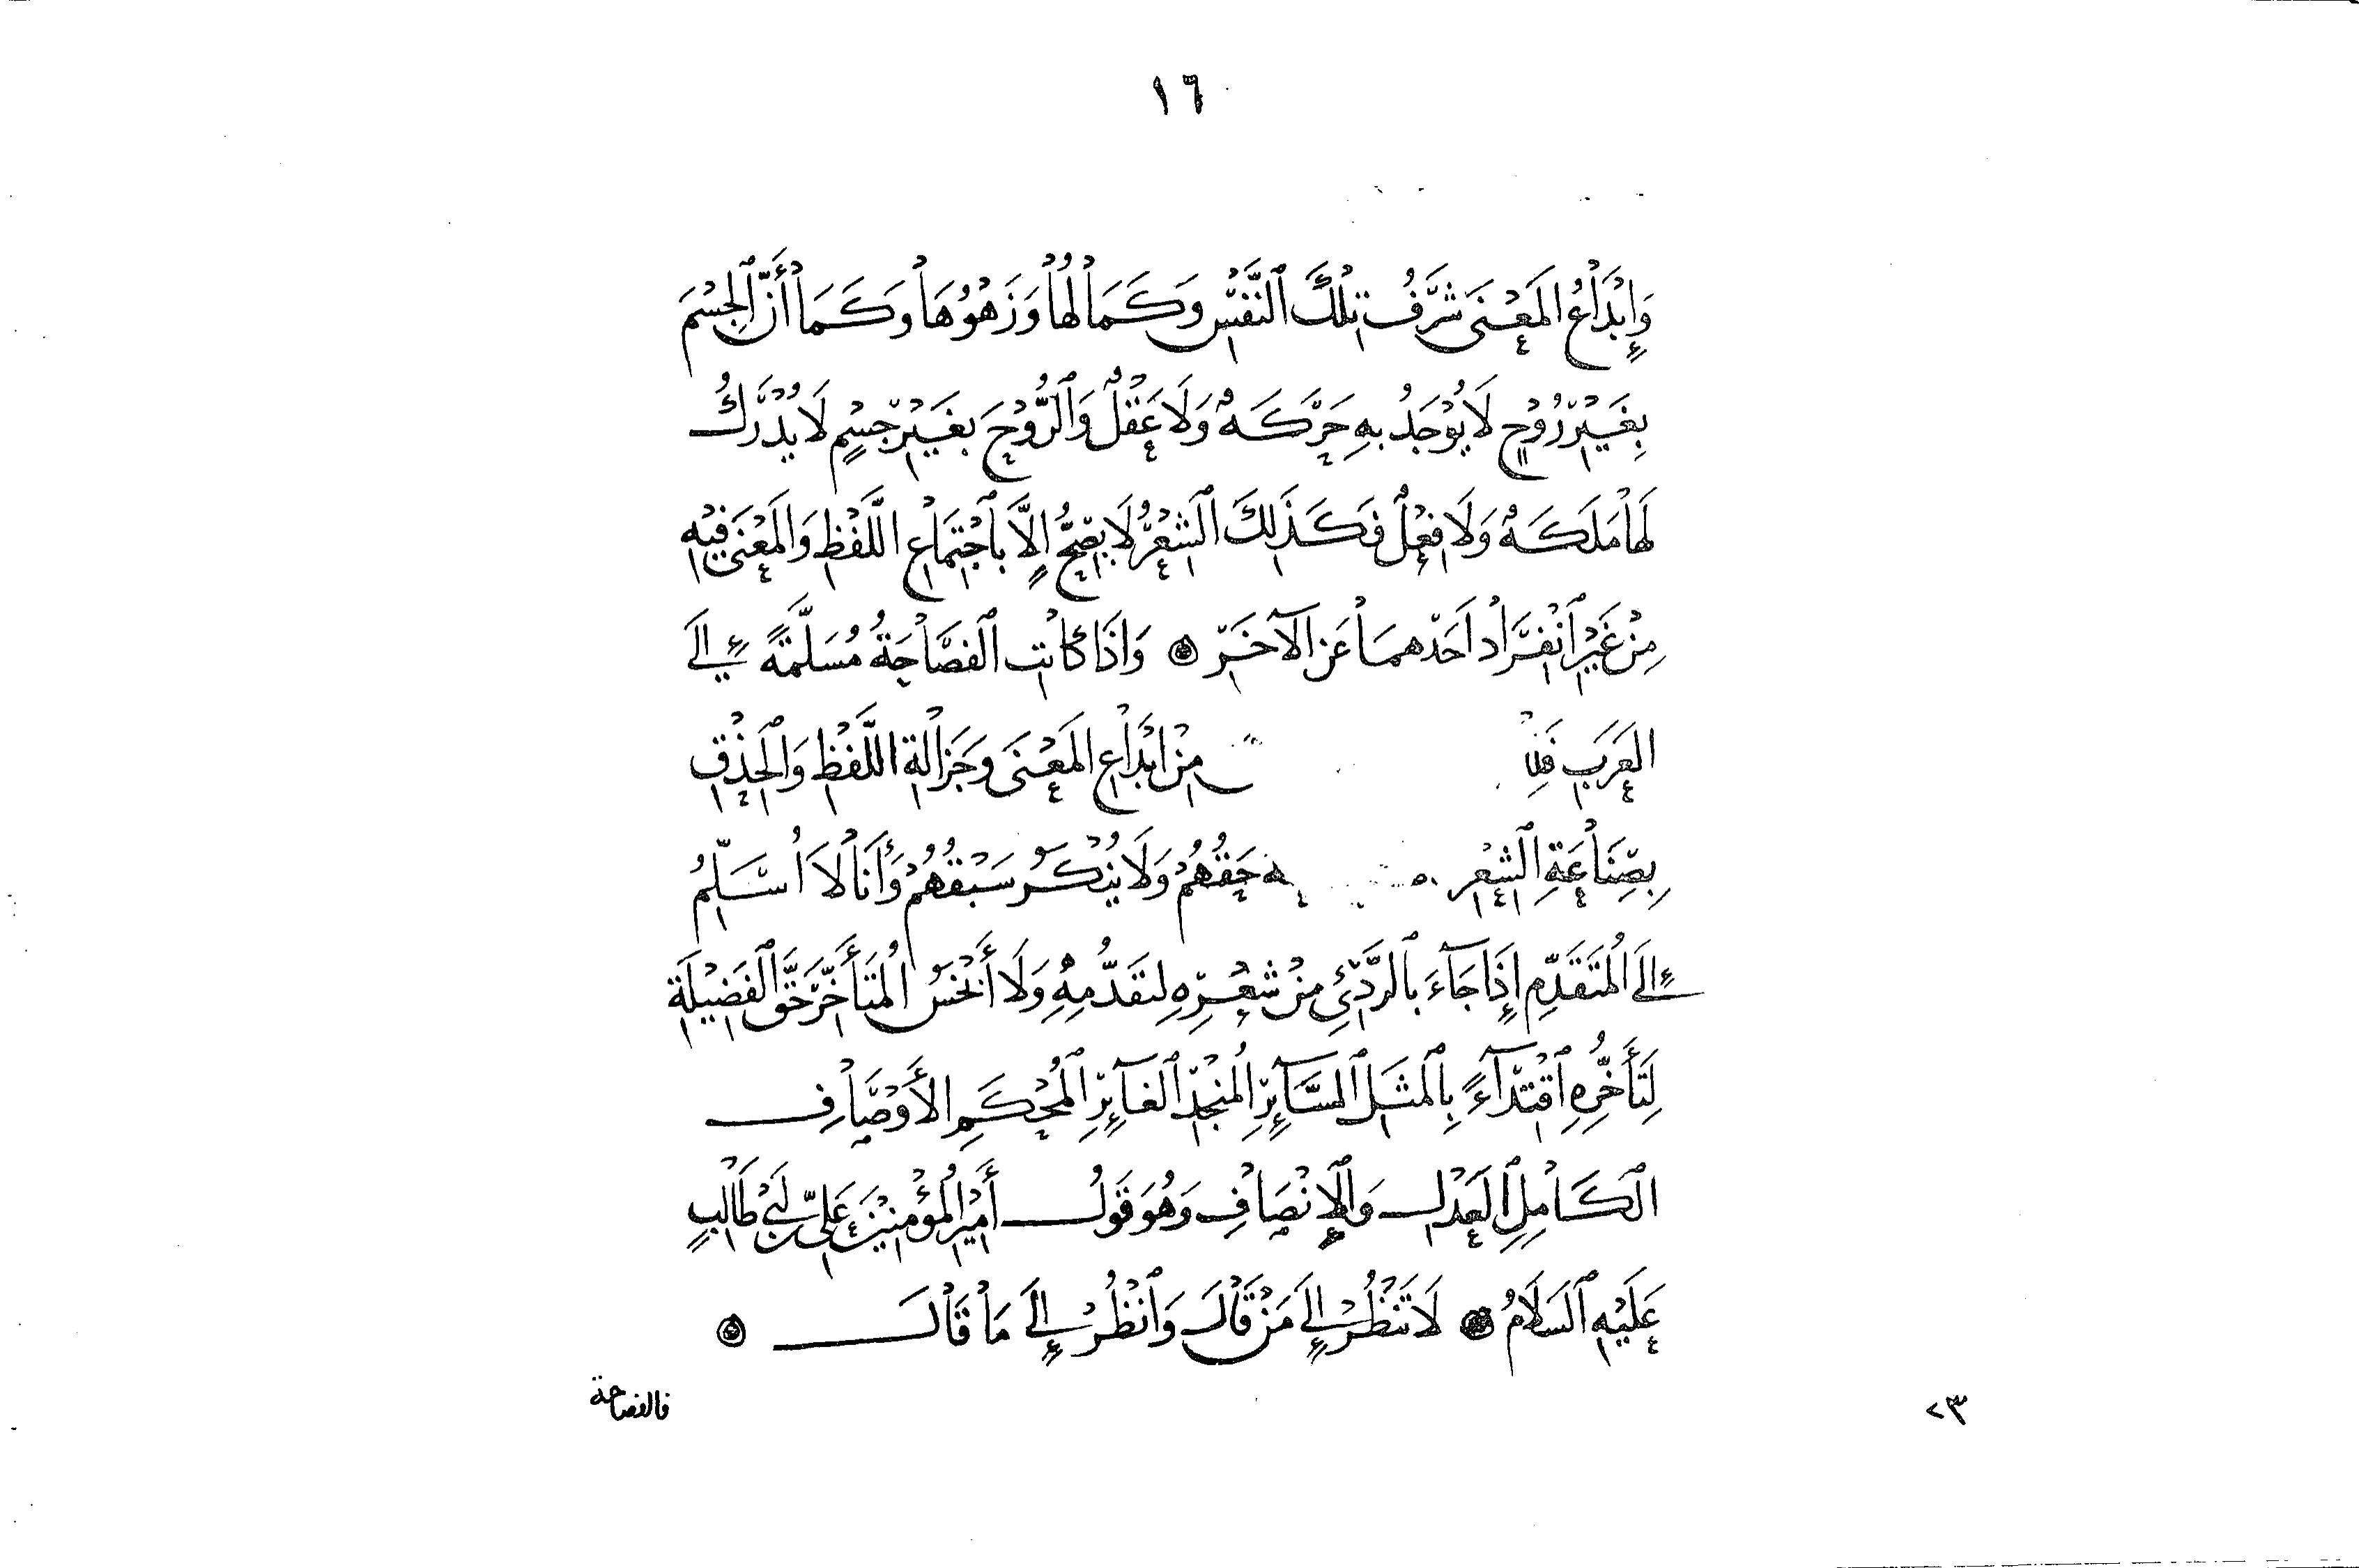 ١٦
وَإِبْدَاعُ المَعْنَى شَرَفُ تِلْكَ ٱلنَّفْسِ وَكَمَالُهَا وَزَهْوُهَا وَكَمَا أَنَّ ٱلجِسْمَ
بِغَيْرِ رُوْحٍ لَا يُوْجَدُ بِهِ حَرَكَةٌ وَلَا عَقْلٌ وَٱلرُّوْحَ بِغَيْرِ جِسْمٍ لَا يُدْرَكُ
لَهَا مَلَكَةٌ وَلَا فِعْلٌ فَكَذَلِكَ ٱلشِعْرُ لَا يَصِحُّ إِلَّا بِٱجْتِمَاعِ اللَّفْظِ وَالمَعْنَى فِيْهِ
مِنْ غَيْرِ ٱنْفِرَادِ أَحَدِهِمَا عَنِ الآخَرِ ۞ وَإِذَا كَانَتِ ٱلفَصَاحَةُ مُسَلَّمَةً إِلَى
العَرَبِ مِنْ إِبْدَاعِ المَعْنَى وَجَزَالَةِ اللَّفْظِ وَٱلحِذْقِ
بِصِنَاعَةِ ٱلشِعْرِ حَقُّهُمْ وَلَا يُنْكَرُ سَبْقُهُمْ وَأَنَا لَا أُسَلِّمُ
إِلَى المُتَقَدِّمِ إِذَا جَآءَ بِٱلرَّدِيْءِ مِنْ شِعْرِهِ لِتَقَدُّمِهِ وَلَا أَبْخَسُ المُتَأَخِّرَ حَقَّ ٱلفَضِيْلَةِ
لِتَأَخُّرِهِ ٱقْتِدَآءً بِٱلمَثَلِ ٱلسَّآئِرِ المُنْجِدِ ٱلغَآئِرِ ٱلمُحْكَمِ الأَوْصَافِ
ٱلكَامِلِ ٱلعَدْلِ وَٱلإِنْصَافِ وَهُوَ قَوْلُ أَمِيْرِ المُؤْمِنِيْنَ عَلِيِّ بْنِ أَبِي طَالِبٍ
عَلَيْهِ ٱلسَلَامُ ۞ لَا تَنْظُرْ إِلَى مَنْ قَالَ وَٱنْظُرْ إِلَى مَا قَالَ ۞
فالفصاحة
٢٣